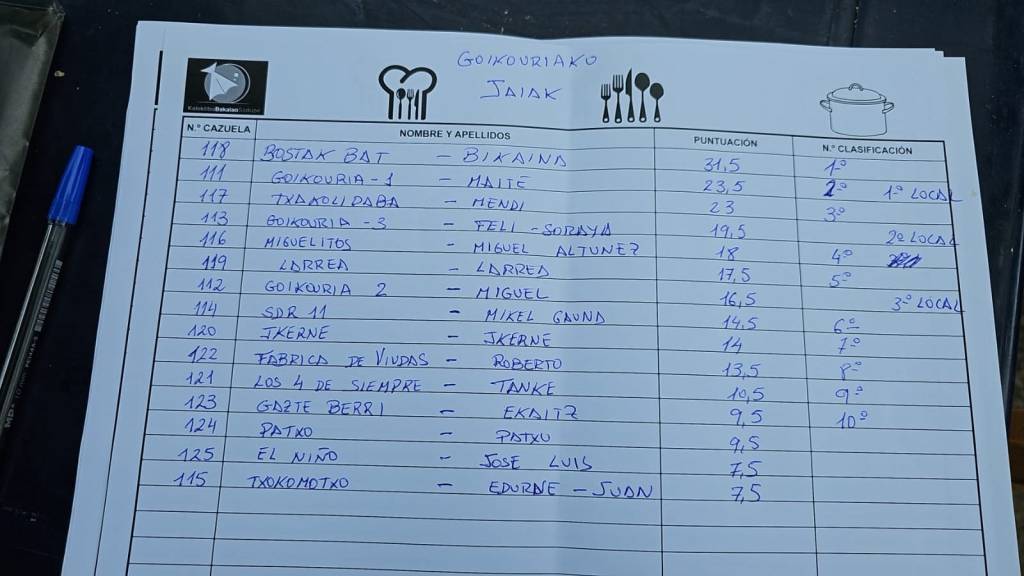 GOIKOURIAKO
JAIAK
N.º CAZUELA NOMBRE Y APELLIDOS PUNTUACIÓN N.º CLASIFICACIÓN
118 BOSTAK BAT - BIKAINA 31,5 1º
111 GOIKOURIA-1 - MAITE 23,5 2º 1º LOCAL
117 TXAKOLIDABA - MENDI 23 3º
113 GOIKOURIA-3 - FELI-SORAYA 19,5 2º LOCAL
116 MIGUELITOS - MIGUEL ALTUNEZ 18 4º
119 LARREA - LARREA 17,5 5º
112 GOIKOURIA 2 - MIGUEL 16,5 3º LOCAL
114 SDR 11 - MIKEL GAUNA 14,5 6º
120 IKERNE - IKERNE 14 7º
122 FÁBRICA DE VIUDAS - ROBERTO 13,5 8º
121 LOS 4 DE SIEMPRE - TANKE 10,5 9º
123 GAZTE BERRI - EKAITZ 9,5 10º
124 PATXO - PATXO 9,5
125 EL NIÑO - JOSE LUIS 7,5
115 TXOKOMOTXO - EDURNE-JUAN 7,5